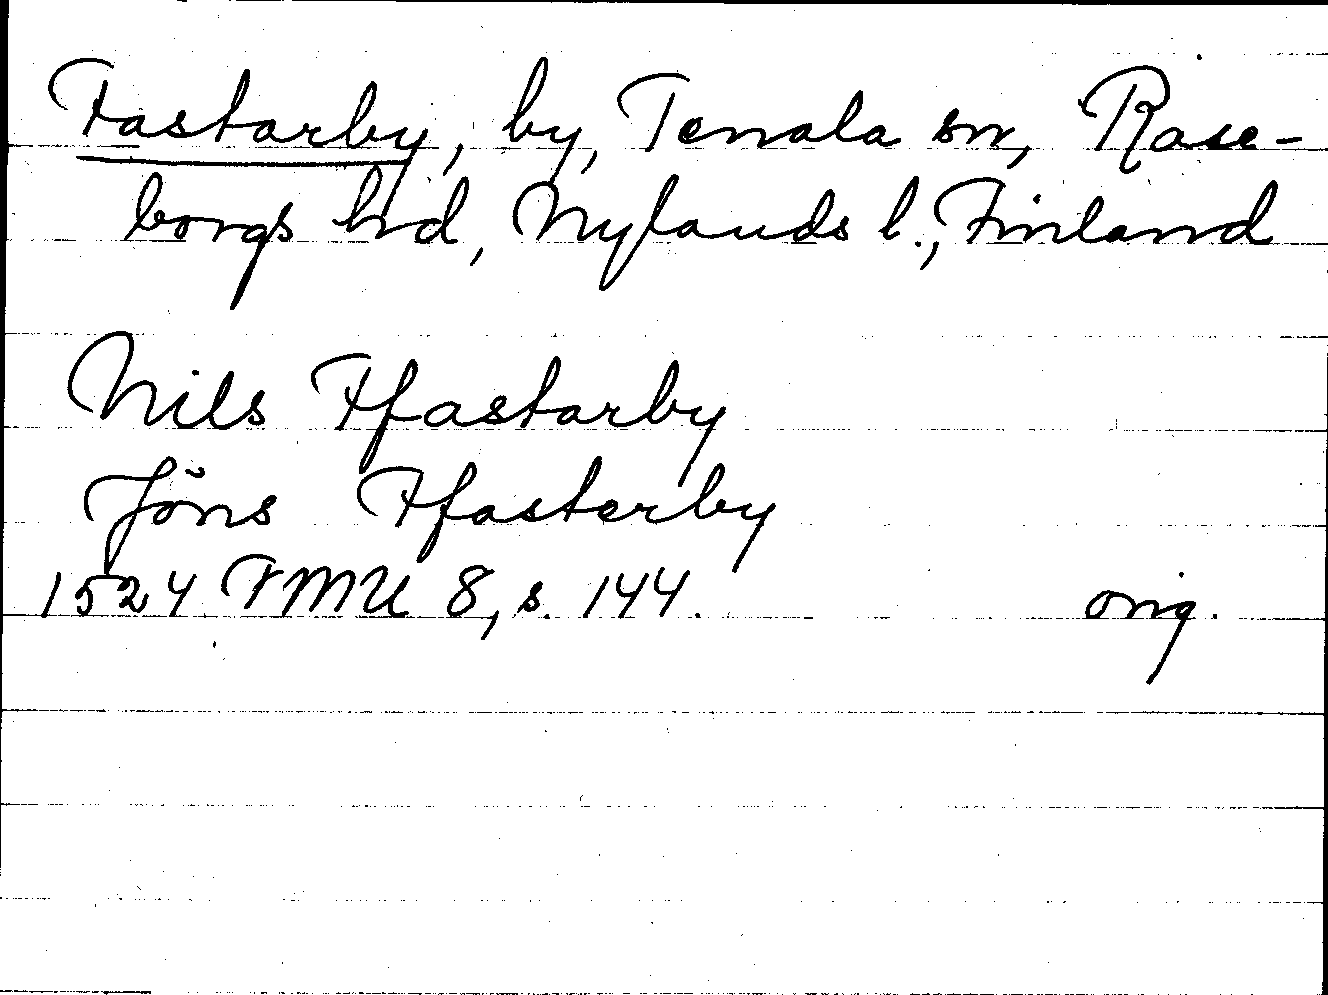 Fastarby, by, Tenala sn, Rase-
borgs hd, Nylands l., Finland
Nils Ffastarby
Jöns Ffasterby
1524 FMU 8, s. 144. orig.